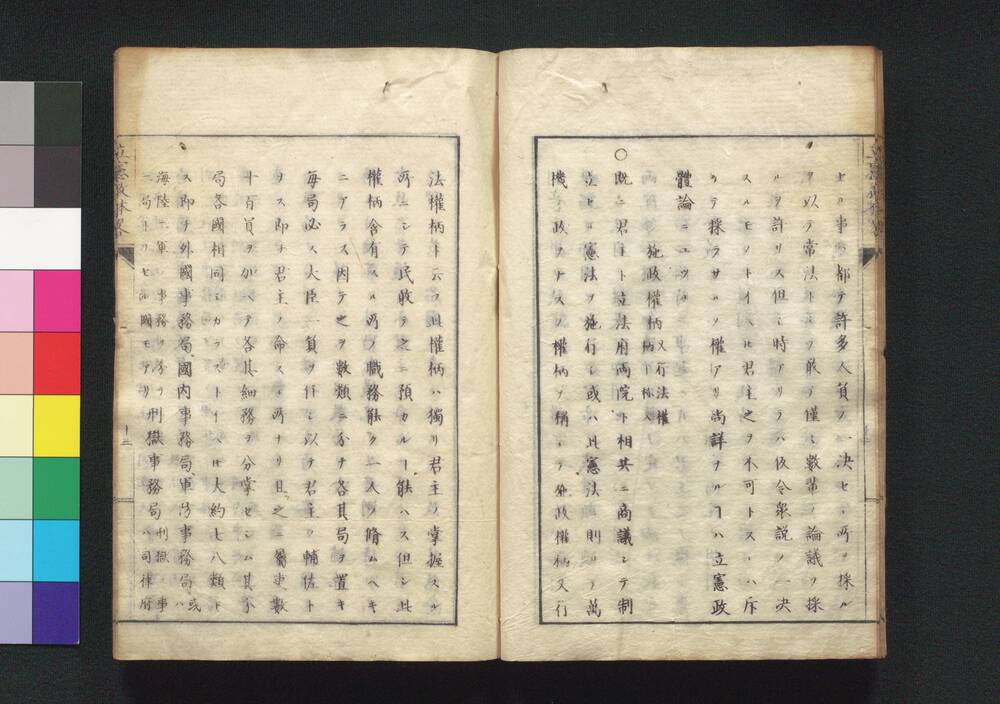 ナル事ハ都テ許多人員ノ一決セシ所ヲ採ル
ヲ以テ常法トナシ敢テ僅々数輩ノ論議ヲ採
ルヲ許リス但シ時アリテハ仮令衆説ノ一決
スルモノトイヘ𪜈君主之ヲ不可トスレハ斥
ケテ採ラサルノ權アリ尚詳ナルヿハ立憲政
體論ニユツル
施政權柄 又行法權柄ト称ス
〇既ニ君主ト立法府両院ト相共ニ商議シテ制
立セシ憲法ヲ施行シ或ハ此憲法ニ則リテ萬
機ノ政ヲナスノ權柄ヲ稱シテ施政權柄又行
法權柄ト云フ此權柄ハ獨リ君主ノ掌握スル
所ニシテ民敢テ之ニ預カルヿ能ハス但シ此
權柄ノ含有スル所ノ職務能ク一人ノ脩ムヘキ
ニアラス因テ之ヲ數類ニ分チ各其局ヲ置キ
每局必ス大臣一員ヲ任シ以テ君主ノ輔佐ト
ナス即チ君主ノ命スル所ナリ且之ニ屬吏數
十百員ヲ加ヘテ各其細務ヲ分掌セシム其分
局各國相同シカラストイヘ𪜈大約七八類ト
ス即チ外國事務局國内事務局軍防事務局 或ハ
海陸二軍ノ事務ヲ分ツ 刑獄事務局 刑獄ノ事ハ司律府
ニ局
國モアリ